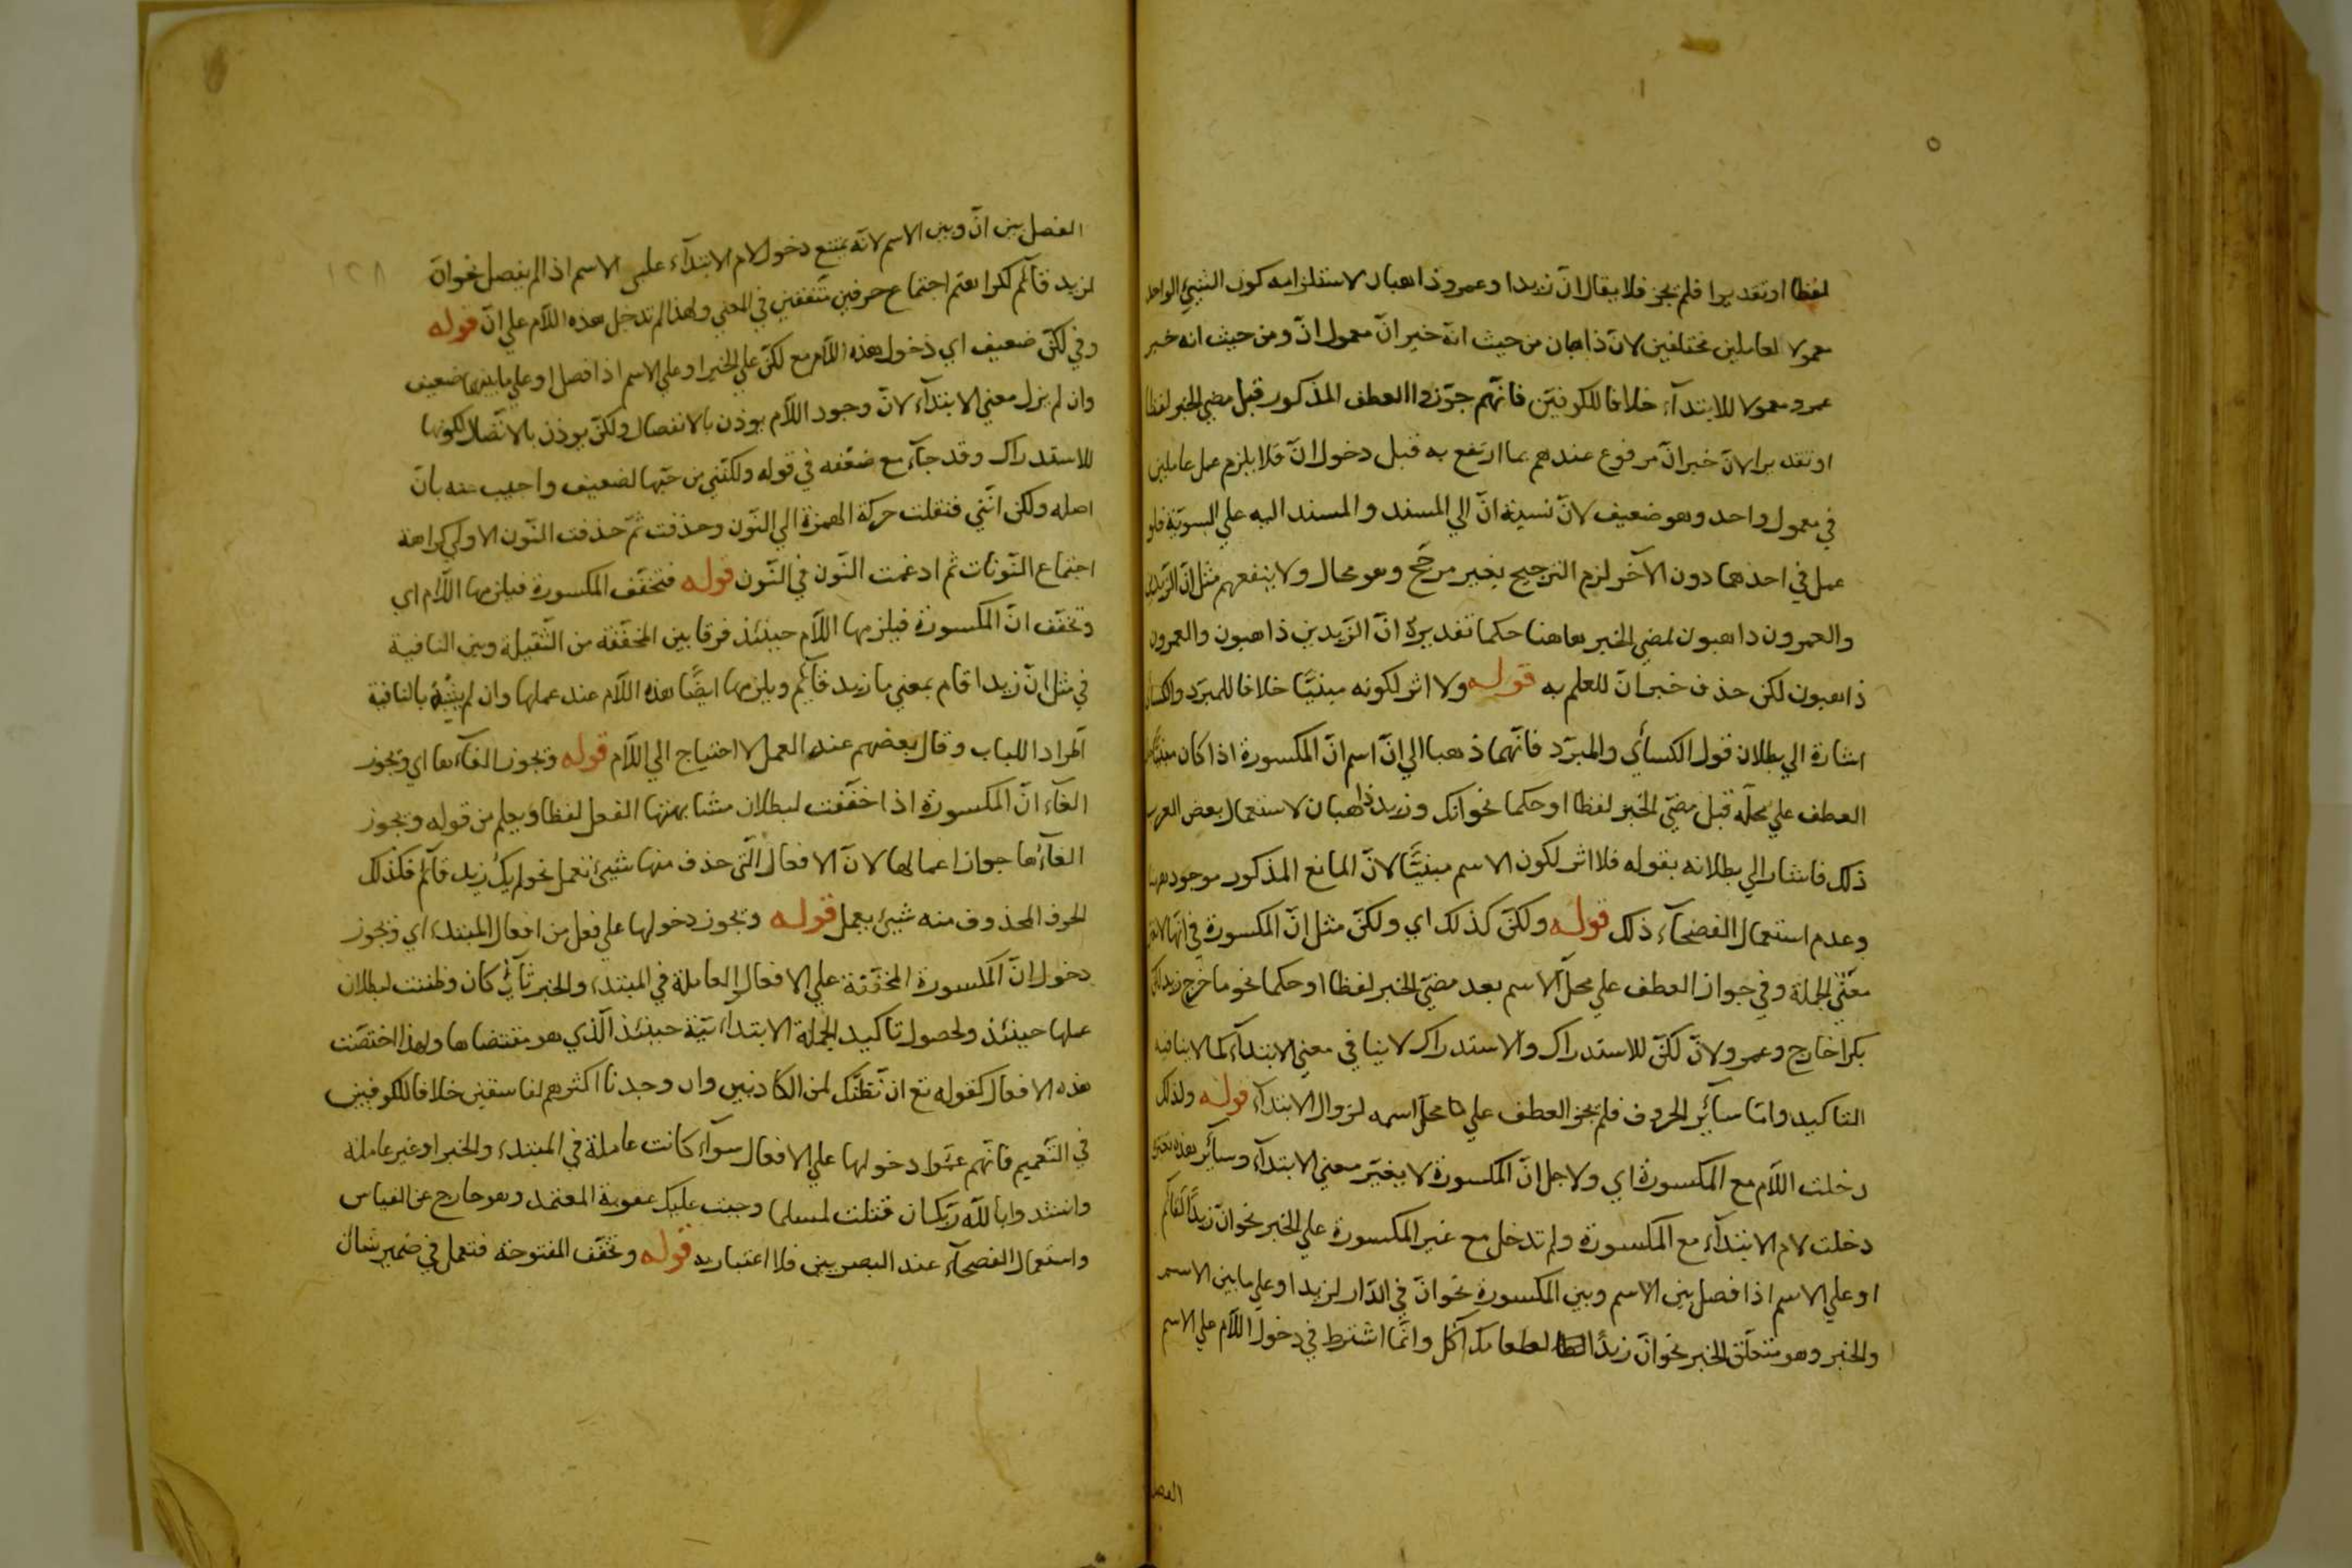 لفظا او تقديرا فلم يجز فلا يقال انّ زيدا وعمرو ذاهبان لاستلزامه كون الشيئ الواحد
معمولا لعاملين مختلفين لانّ ذاهبان من حيث انّه خبر انّ معمول انّ ومن حيث انه خبر
عمرو معمولا للابتدآء خلافا للكوفيّن فانّهم جوّزوا العطف المذكور قبل مضي الخبر لفظا
او تقديرا لانّ خبر انّ مرفوع عندهم بما ارتفع به قبل دخول انّ فلا يلزم عمل عاملين
في معمول واحد وهو ضعيف لانّ نسبة انّ الي المسند والمسند اليه علي السويّة فلو
عمل في احدهما دون الآخر لزم الترجيح بغير مرجّح وهو محال ولا ينفعهم مثل انّ الزّيدين
والعمرون ذاهبون لمضي الخبر هاهنا حكما تقديره انّ الزّيدين ذاهبون والعمرون
ذاهبون لكن حذف خبر انّ للعلم به قوله ولا اثر لكونه مبنيّا خلافا للمبرّد والكسائي
اشارة الي بطلان قول الكسأي والمبرّد فانّهما ذهبا الي انّ اسم انّ المكسورة اذا كان مبنيّا
العطف علي محلّه قبل مضيّ الخبر لفظا او حكما نحو انّك وزيد ذاهبان لاستعمال بعض العرب
ذلك فاشار الي بطلانه بقوله فلا اثر لكون الاسم مبنيّا لانّ المانع المذكور موجود
وعدم استعمال الفصحآء ذلك قوله ولكنّ كذلك اي ولكنّ مثل انّ المكسورة في انّها
معني الجملة وفي جواز العطف علي محلّ الاسم بعد مضيّ الخبر لفظا او حكما نحو ما خرج زيد لكنّ
بكرا خارج وعمرو ولانّ لكنّ للاستدراك والاستدراك لا ينافي معني الابتدآء كما لا ينافيه
التاكيد وامّا سآئر الحروف فلم يجز العطف علي محلّ اسمه لزوال الابتدآء قوله ولذلك
دخلت اللّام مع المكسورة اي ولاجل انّ المكسورة لا يغيّر معني الابتدآء وسآئر هذه
دخلت لام الابتدآء مع المكسورة ولم تدخل مع غير المكسورة علي الخبر نحو انّ زيدًا لقآئم
او علي الاسم اذا فصل بين الاسم وبين المكسورة نحو انّ في الدّار لزيدا او علي ما بين الاسم
والخبر وهو متعلّق الخبر نحو انّ زيدًا لطعامك آكل وانّما اشترط في دخول اللّام علي الاسم
الفصل
١٢٨
الفصل بين انّ وبين الاسم لانّه يمتنع دخول لام الابتدآء علي الاسم اذا لم يفصل نحو انّ
لزيد قآئم لكراهتهم اجتماع حرفين متّفقين في المعني ولهذا لم تدخل هذه اللّام علي انّ قوله
وفي لكنّ ضعيف اي دخول هذه اللّام مع لكنّ علي الخبر او علي الاسم اذا فصل او علي ما بينهما ضعيف
وان لم يزل معني الابتدآء لانّ وجود اللّام يوذن بالانفصال ولكنّ يوذن بالاتّصال لكونها
للاستدراك وقد جآء مع ضعفه في قوله ولكنّني من حبّها لضعيف واجيب عنه بانّ
اصله ولكن انّني فنقلت حركة الهمزة الي النّون وحذفت ثمّ حذفت النّون الاولي كراهة
اجتماع النّونات ثم ادغمت النّون في النّون قوله فتخفّف المكسورة فيلزمها اللّام اي
وتخفّف انّ المكسورة فيلزمها اللّام حينئذ فرقا بين المخفّفة من الثّقيلة وبين النافية
في مثل انّ زيدا قام بمعني ما زيد قآئم ويلزمها ايضًا هذه اللّام عند عملها وان لم يشبه بالنافية
اطّرادا للباب وقال بعضهم عند العمل لا احتياج الي اللّام قوله وتجوز الغآءها اي وتجوز
الغآء انّ المكسورة اذا خفّفت لبطلان مشابهتها الفعل لفظا ويعلم من قوله ويجوز
الغآءها جواز اعمالها لانّ الافعال الّتي حذف منها شيئ تعمل نحو لم يك زيد قآئم فكذلك
الحرف المحذوف منه شيئ يعمل قوله وتجوز دخولها علي فعل من افعال المبتدء اي وتجوز
دخول انّ المكسورة المخفّفة علي الافعال العاملة في المبتدء والخبر كان وظننت لبطلان
عملها حينئذ ولحصول تاكيد الجملة الابتدائيّة حينئذ الّذي هو مقتضاها ولهذا اختصّت
هذه الافعال كقوله تع ان نّظنّك لمن الكاذبين وان وجدنا اكثرهم لفاسقين خلافا للكوفيين
في التّعميم فانّهم عمّموا دخولها علي الافعال سوآء كانت عاملة في المبتدء والخبر او غير عاملة
وانشدوا بالله ربّك ان قتلت لمسلما وجبت عليك عقوبة المعتمد وهو خارج عن القياس
واستعمال الفصحآء عند البصريين فلا اعتبار به قوله وتخفّف المفتوحة فتعمل في ضمير شان